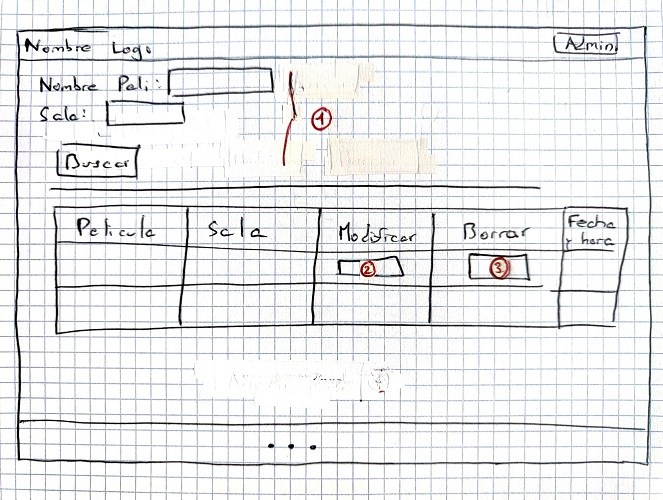 Nombre Logo
Admin
Nombre Peli:
Sala:
1
Buscar
Pelicula Sala Modificar Borrar Fecha y hora
2 3
...